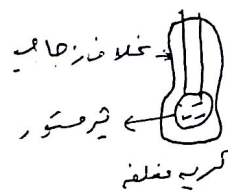 غلاف زجاجي
ثرمستور
كريه مغلفه